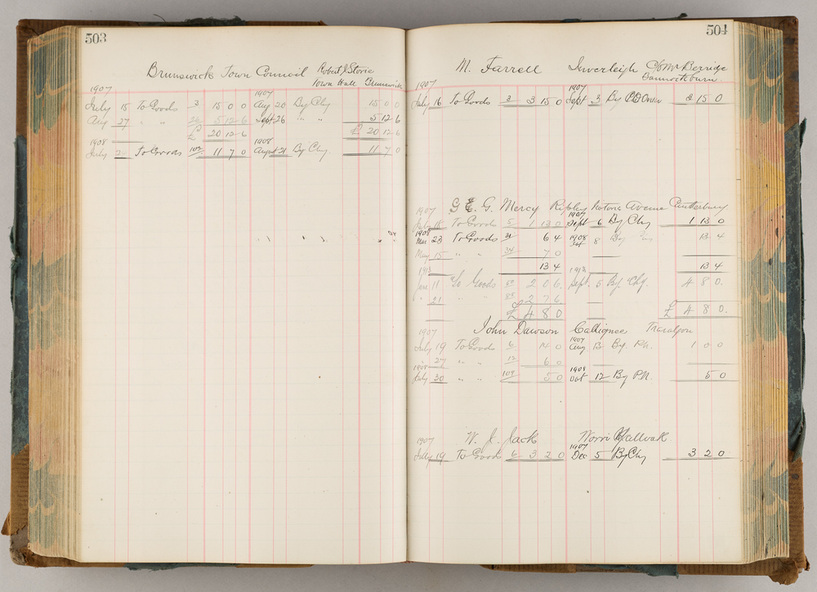 503
Brunswick Town Council Robert J Storie
Town Hall Brunswick
1907 1907
July 15 To Goods 2 15 0 0 Aug 20 By Chq 15 0 0
Aug 27 " " 5 12 6 Sept 26 " " 5 12 6
£ 20 12 6 £ 20 12 6
1908 1908
July To Goods 102 11 7 0 August 21 By Chq 11 7 0
504
M. Farrell Inverleigh C/o Mr Berridge
Bannockburn
1907 1907
July 16 To Goods 2 3 15 0 Sept 3 By P.O. Order 3 15 0
1907 G. E. G. Mercy Ripley Avenue Canterbury
1907
July 18 To Goods 5 1 13 0 Sept 6 By Chq 1 13 0
1908 1908
Mar 23 To Goods 31 6 4 8 By 13 4
May 15 " " 34 7 0
13 4 13 4
June 11 To Goods 2 0 6 Sept 6 By Chq 4 8 0
" 21 2 7 6
£ 4 8 0 £ 4 8 0
1907 John Dawson Callignee Traralgon
1907
July 19 To Goods 6 14 0 Aug 13 By P.N. 1 0 0
" 27 " " 12 6 0
1908 1908
July 30 " " 104 5 0 Oct 12 By P.N. 5 0
1907 W. J. Jack Worri Yallock
1907
July 19 To Goods 6 3 2 0 Dec 5 By Chq 3 2 0